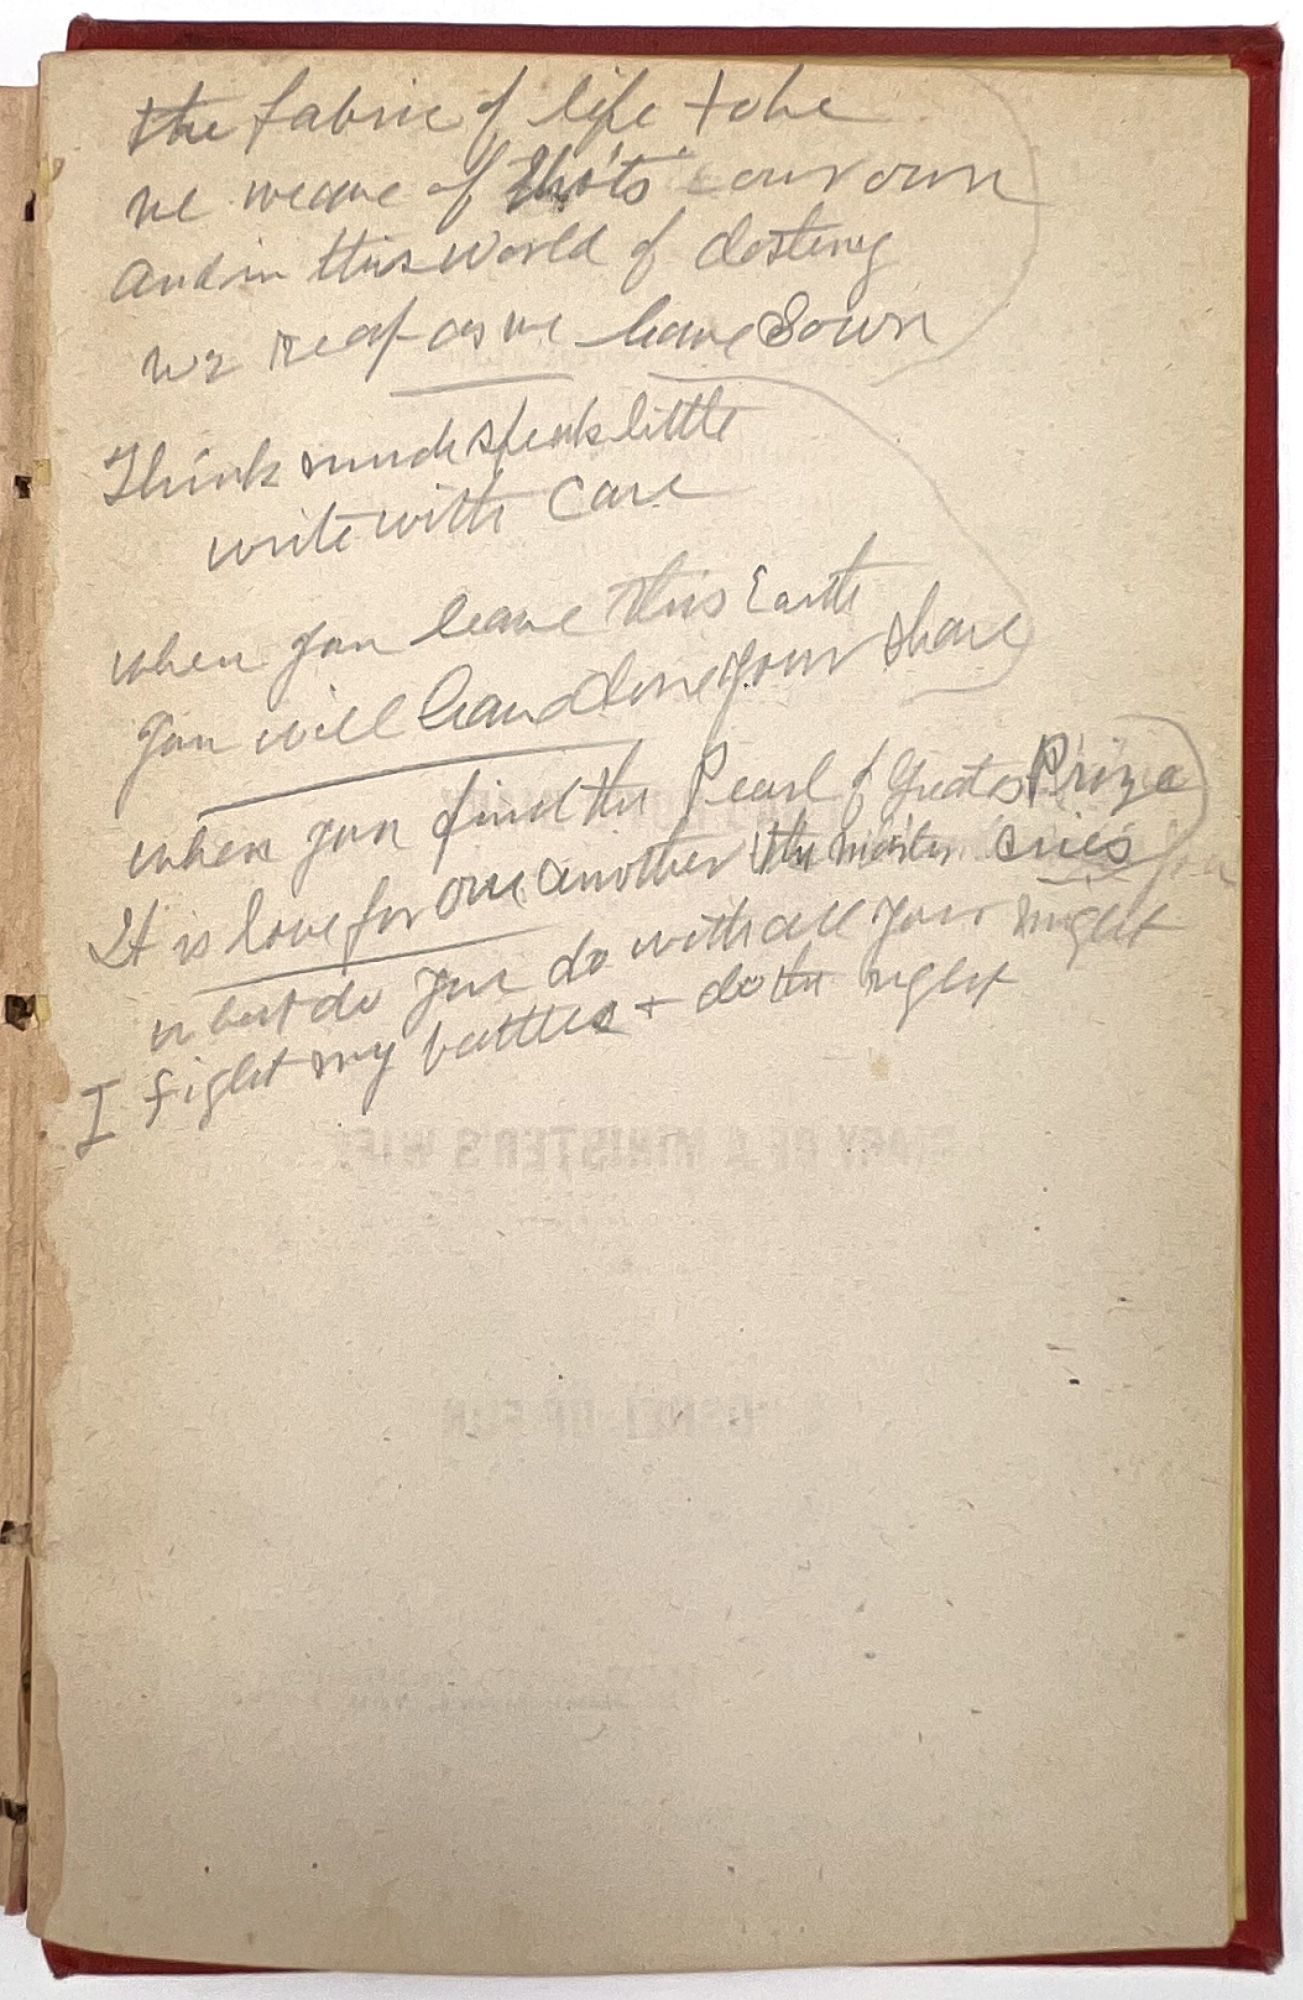 the fabric of life to be
we weave of tho'ts our own
and in this world of destiny
we reap as we have Sown
Think much speak little
write with care
when you leave this Earth
you will have done your share
when you find the Pearl of Greates Prize
It is love for one another the master cries
what do you do with all your might
I fight my battles + do the right
DIARY OF A MINISTER'S WIFE
OF FUN